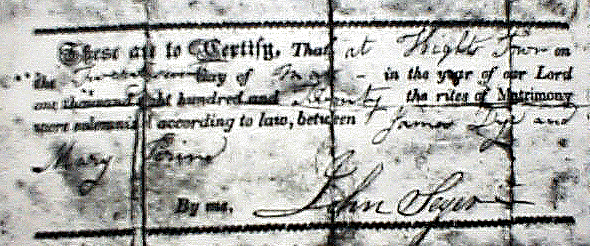 These are to Certify, That at Hights Town on
the day of May - in the year of our Lord
one thousand eight hundred and Twenty the rites of Matrimony
were solemnised according to law, between James Dye and
Mary Perine
By me, John Seger